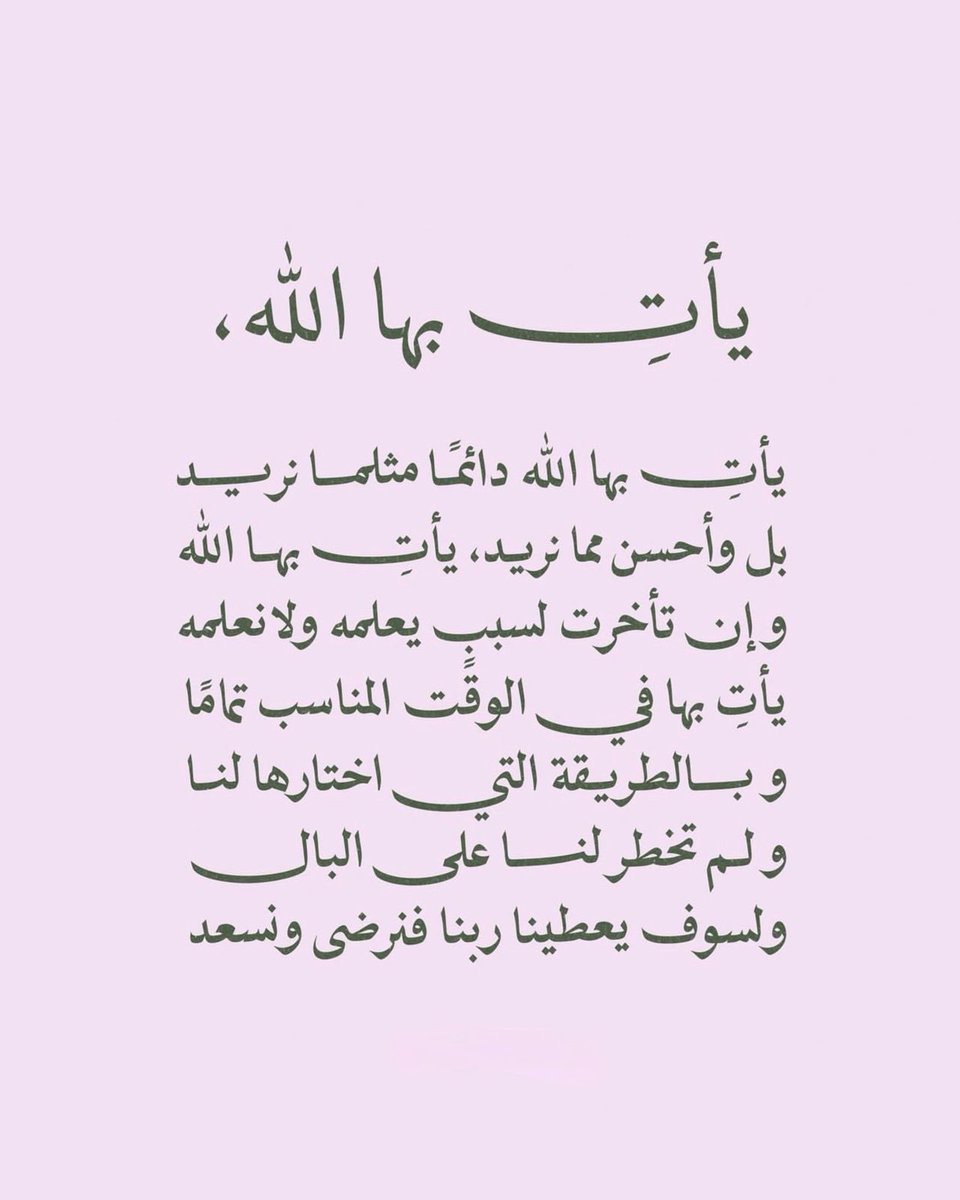 يأتِ بها الله،
يأتِ بها الله دائمًا مثلما نريد
بل وأحسن مما نريد، يأتِ بها الله
وإن تأخرت لسببٍ يعلمه ولانعلمه
يأتِ بها في الوقت المناسب تمامًا
وبالطريقة التي اختارها لنا
ولم تخطر لنا على البال
ولسوف يعطينا ربنا فنرضى ونسعد